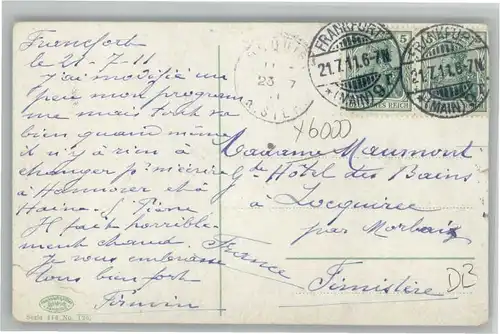 Francfort
le 21-7-11
J'ai modifié un
peu mon programme
me mais tout va
bien quand même
il n'y a rien à
changer p. m'écrire
à Hanovre et à
Il fait horrible-
ment chaud.
Je vous embrasse
tous bien fort
Firmin
Serie 444 No.
FRANKFURT
21.7.11.6-7N
*(MAIN)9r
FRANKFURT
21.7.11.6-7N
*(MAIN)9r
5
REICH
23 7
X6000
Madame Maumont
Gd Hôtel des Bains
à Locquirec
par Morlaix
Finistère
France
DB